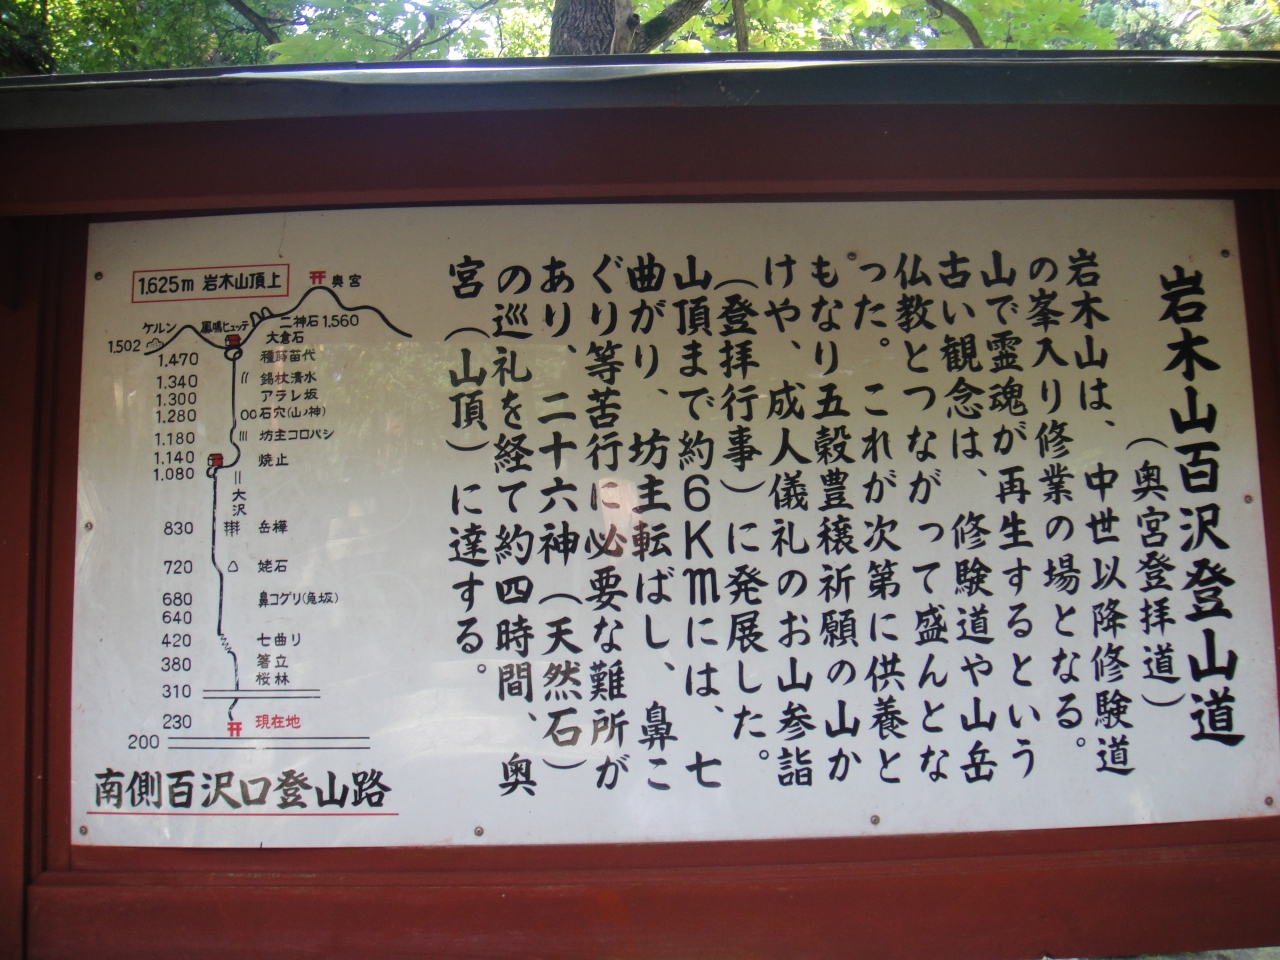 岩木山百沢登山道
（奥宮登拝道）
岩木山は、中世以降修験道
の峯入り修業の場となる。
山で霊魂が再生するという
古い観念は、修験道や山岳
仏教とつながって盛んとな
った。これが次第に供養と
もなり五穀豊穣祈願の山か
けや、成人儀礼のお山参詣
（登拝行事）に発展した。
山頂まで約6Kmには、七
曲がり、坊主転ばし、鼻こ
ぐり等苦行に必要な難所が
あり、二十六神（天然石）
の巡礼を経て約四時間、奥
宮（山頂）に達する。
1.625m 岩木山頂上
奥宮
ケルン
鳳鳴ヒュッテ
二神石 1.560
1.502
大倉石
1.470 種蒔苗代
1.340 錫杖清水
1.300 アラレ坂
1.280 石穴(山ノ神)
1.180 坊主コロバシ
1.140 焼止
1.080
大沢
830 岳樺
720 姥石
680 鼻コグリ(急坂)
640
420 七曲り
380 箸立
桜林
310
230 現在地
200
南側百沢口登山路